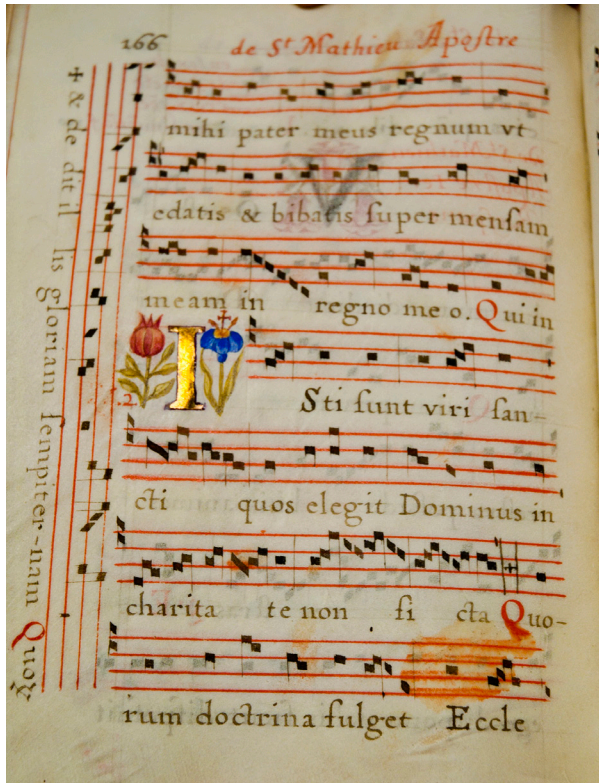 166 de St Mathieu Apostre
mihi pater meus regnum vt
edatis & bibatis super mensam
meam in regno meo. Qui in
.2. ISti sunt viri san-
cti quos elegit Dominus in
charita te non fi cta Quo-
rum doctrina fulget Eccle
+ & de dit il lis gloriam sempiter-nam Quoꝝ